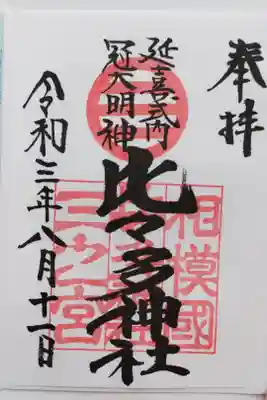 奉拝
延喜式内
冠大明神
比々多神社
相模國
三之宮
令和三年八月十一日